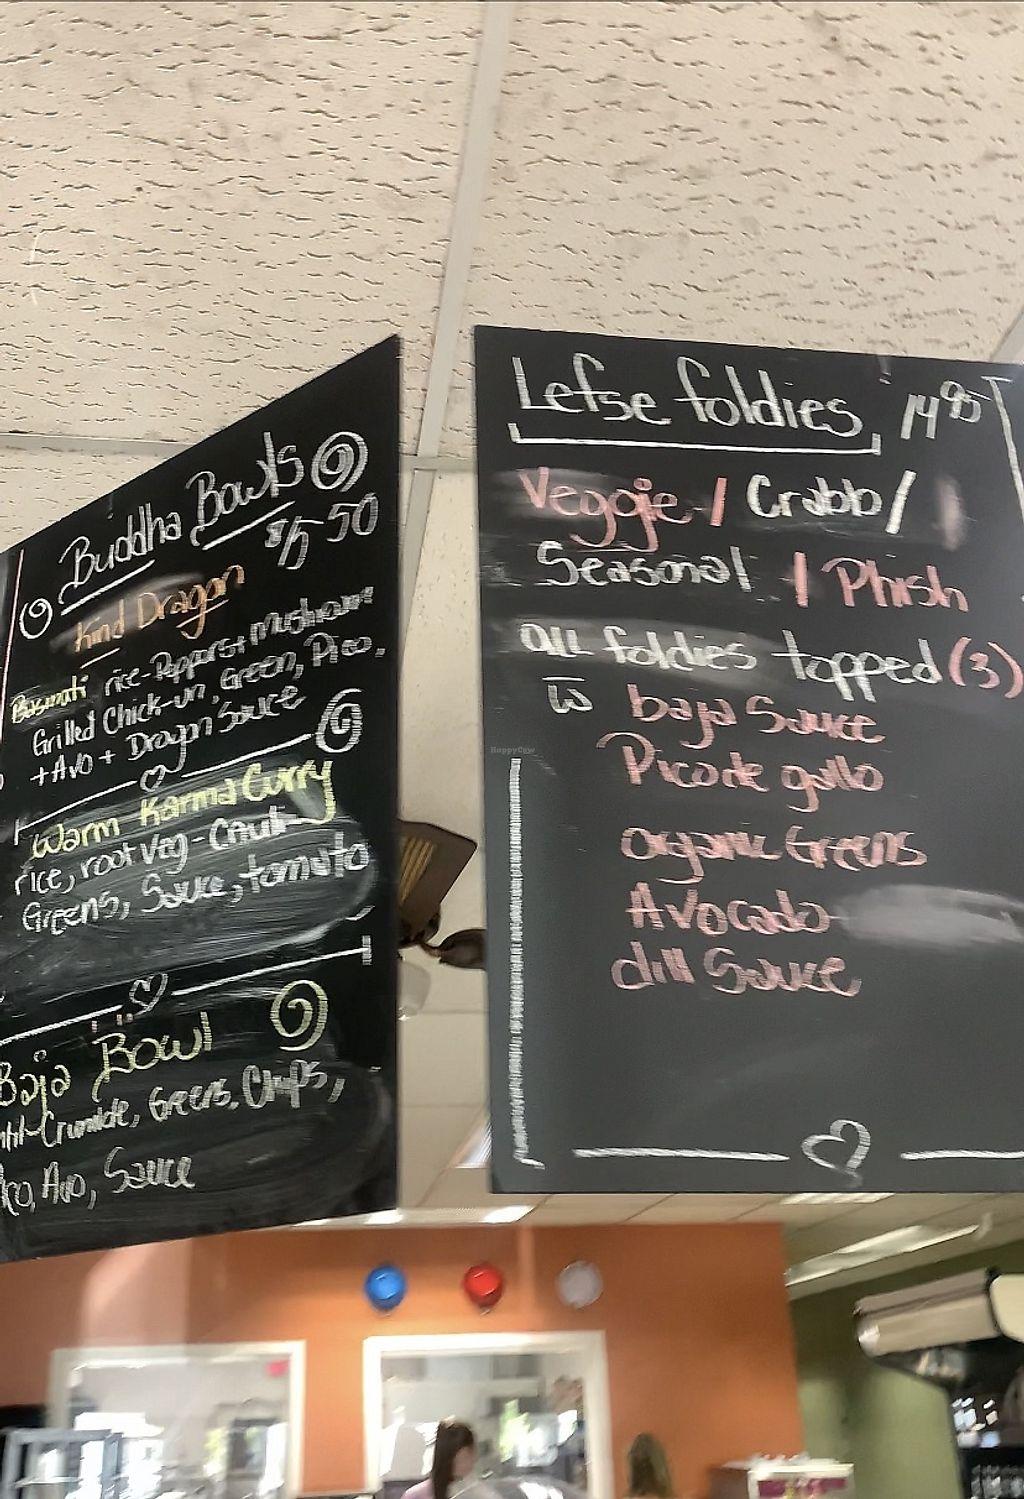 Buddha Bowls
$15 50
Kind Dragon
Basmati rice-Peppers+Mushrooms
Grilled Chick-un, Green, Pico,
+Avo + Dragon Sauce
Warm Karma Curry
rice, root veg-Cauli-
Greens, Sauce, tomato
Baja Bowl
Crumble, Greens, Chips,
Avo, Sauce
Lefse foldies 14 95
Veggie / Crabb /
Seasonal / Phish
all foldies topped (3)
w baja Sauce
Pico de gallo
organic Greens
Avocado
dill Sauce
HappyCow